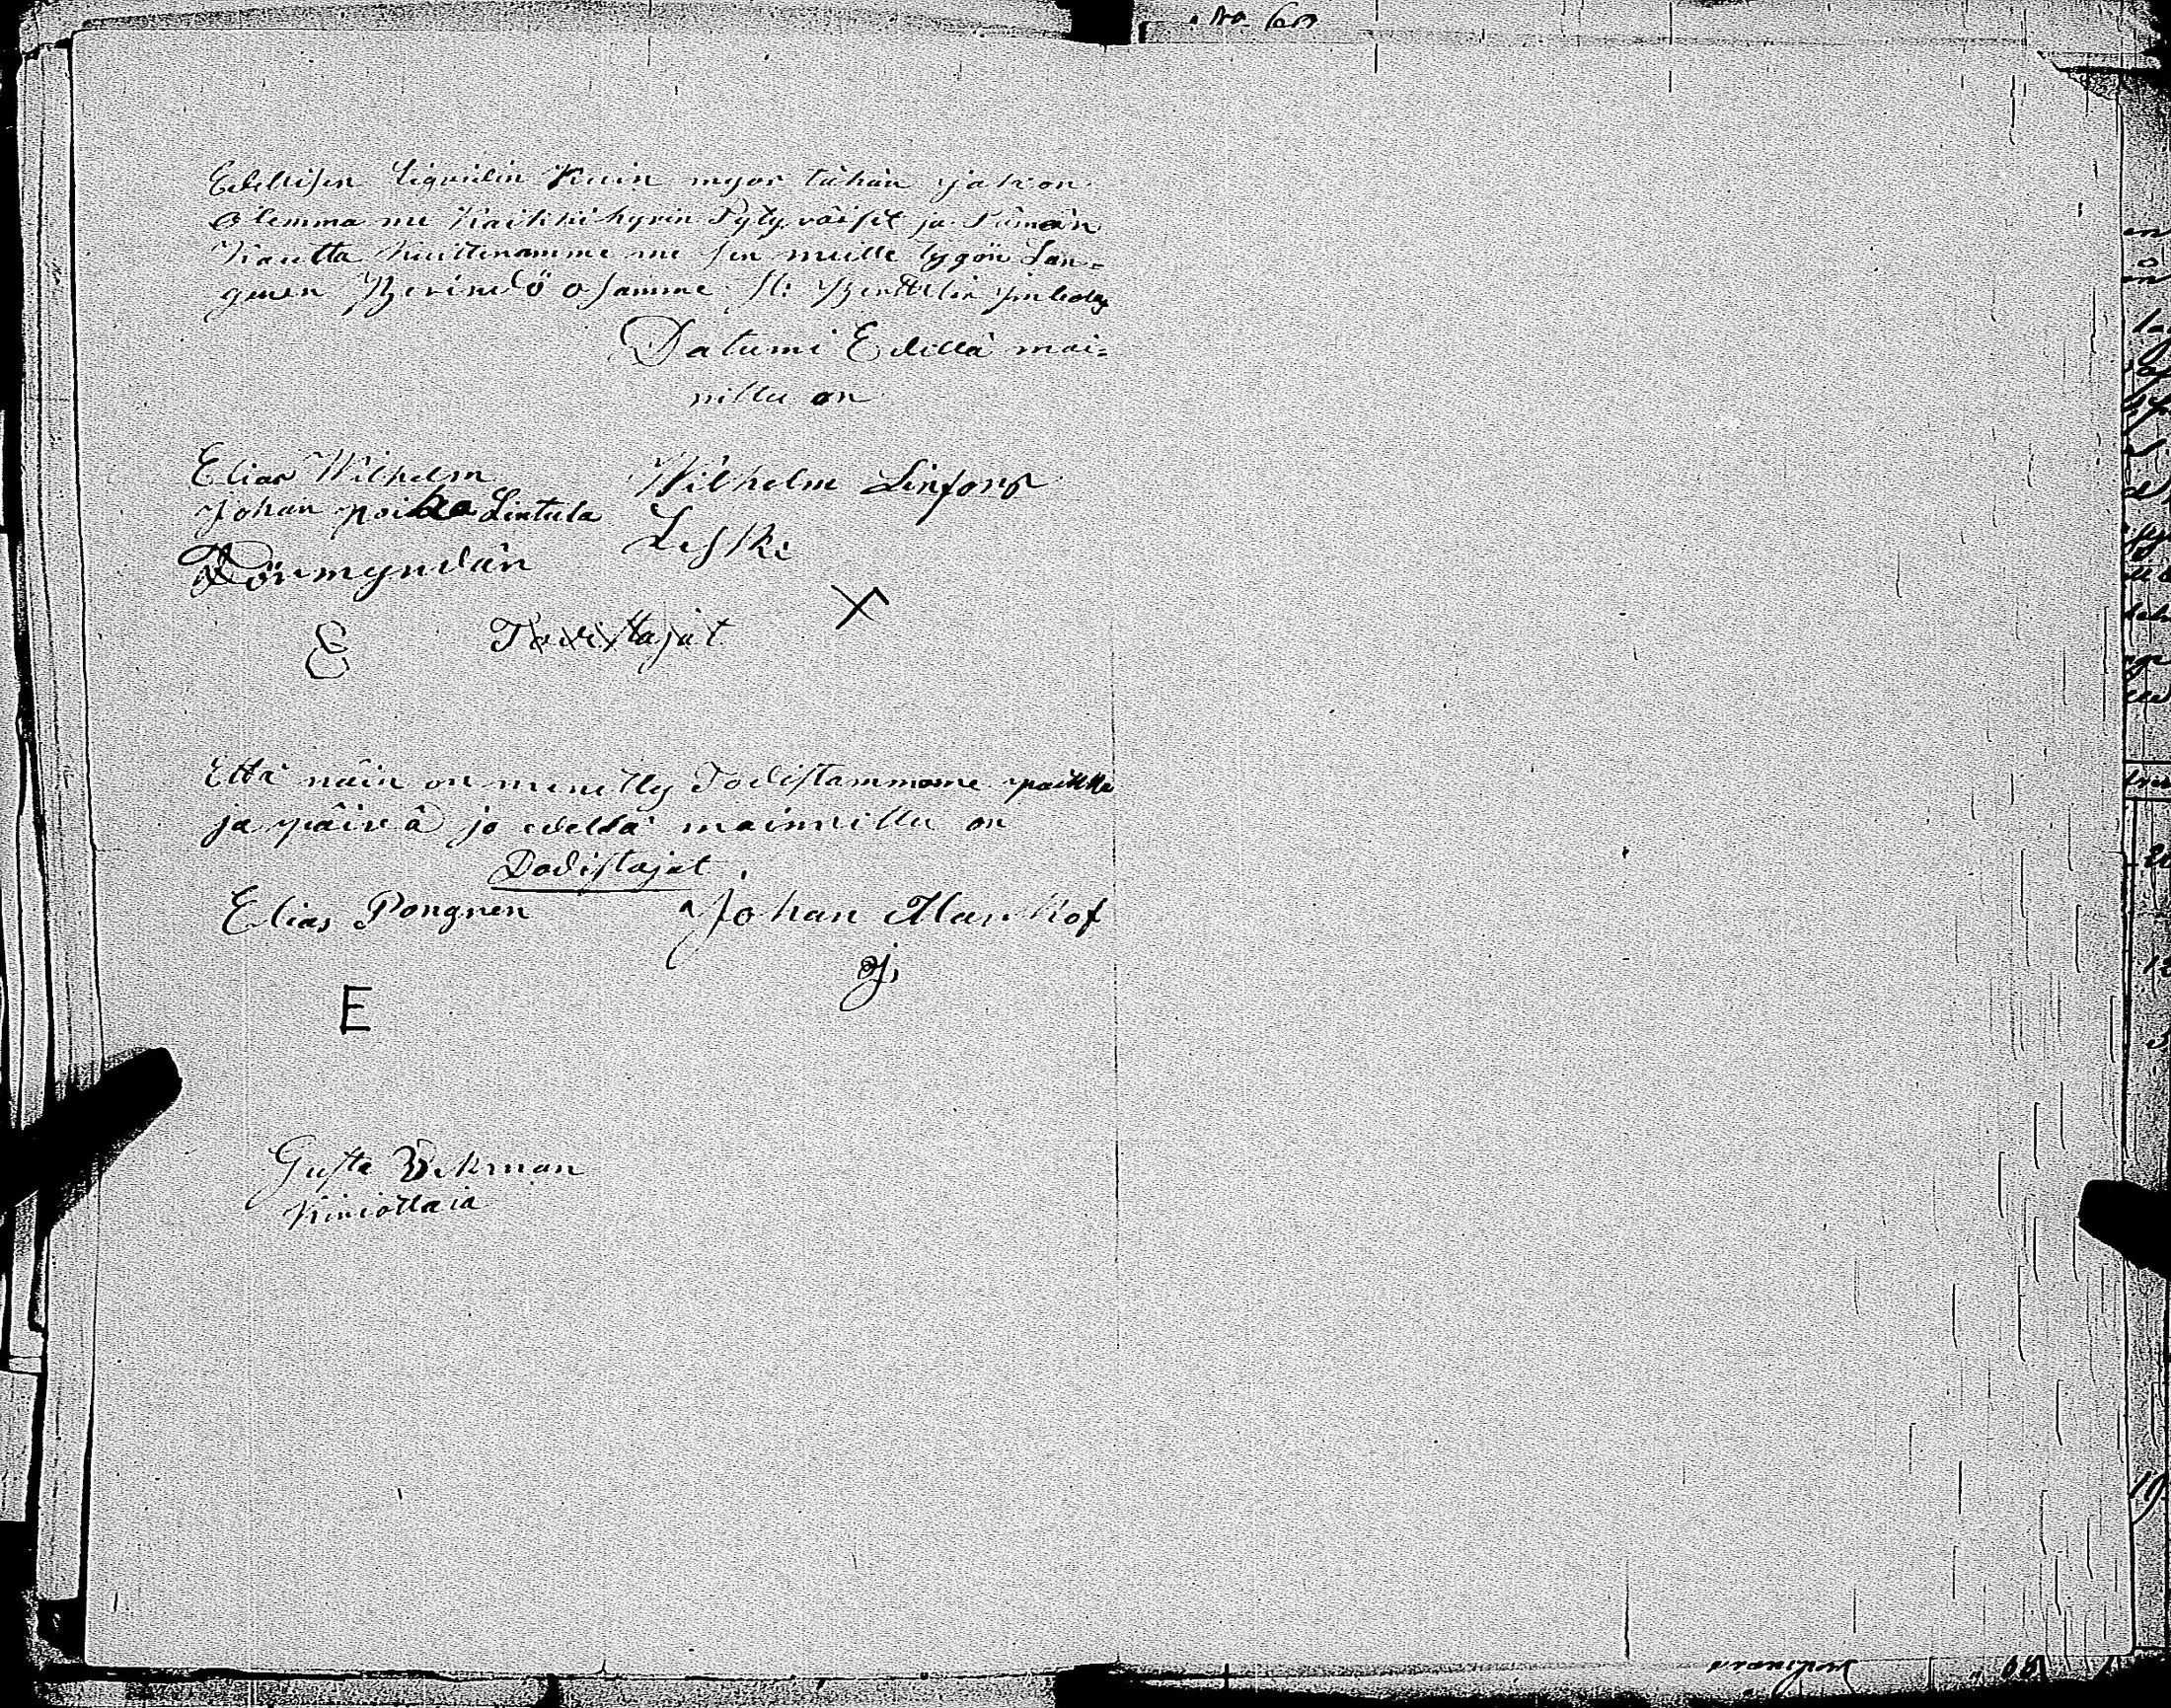 No 60
Edellisen Liqvidin Kuin myös tähän jakoon
Olemma me Kaikki hyvin Tyty väiset ja Tämän
Kautta Kuittenamme me sen meille tygön Lan=
genen Perindö osamme
Datumi Edellä mai=
nittu on
Elias Wilhelm
Johan poika Lintula
Förmyndän
Wilhelm Linfors
Leski
X
Todistajat
Että näin on menetty Todistammome paikka
ja päivä jo edellä mainnittu on
Dodistajat
Elias Pongnen
Johan Markof
E
Gusta Vekman
Kiriottaia